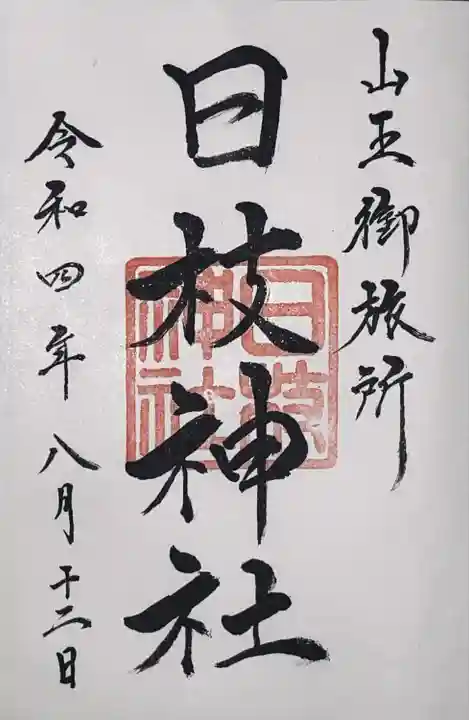 山王御旅所
日枝神社
令和四年八月十二日
日枝神社